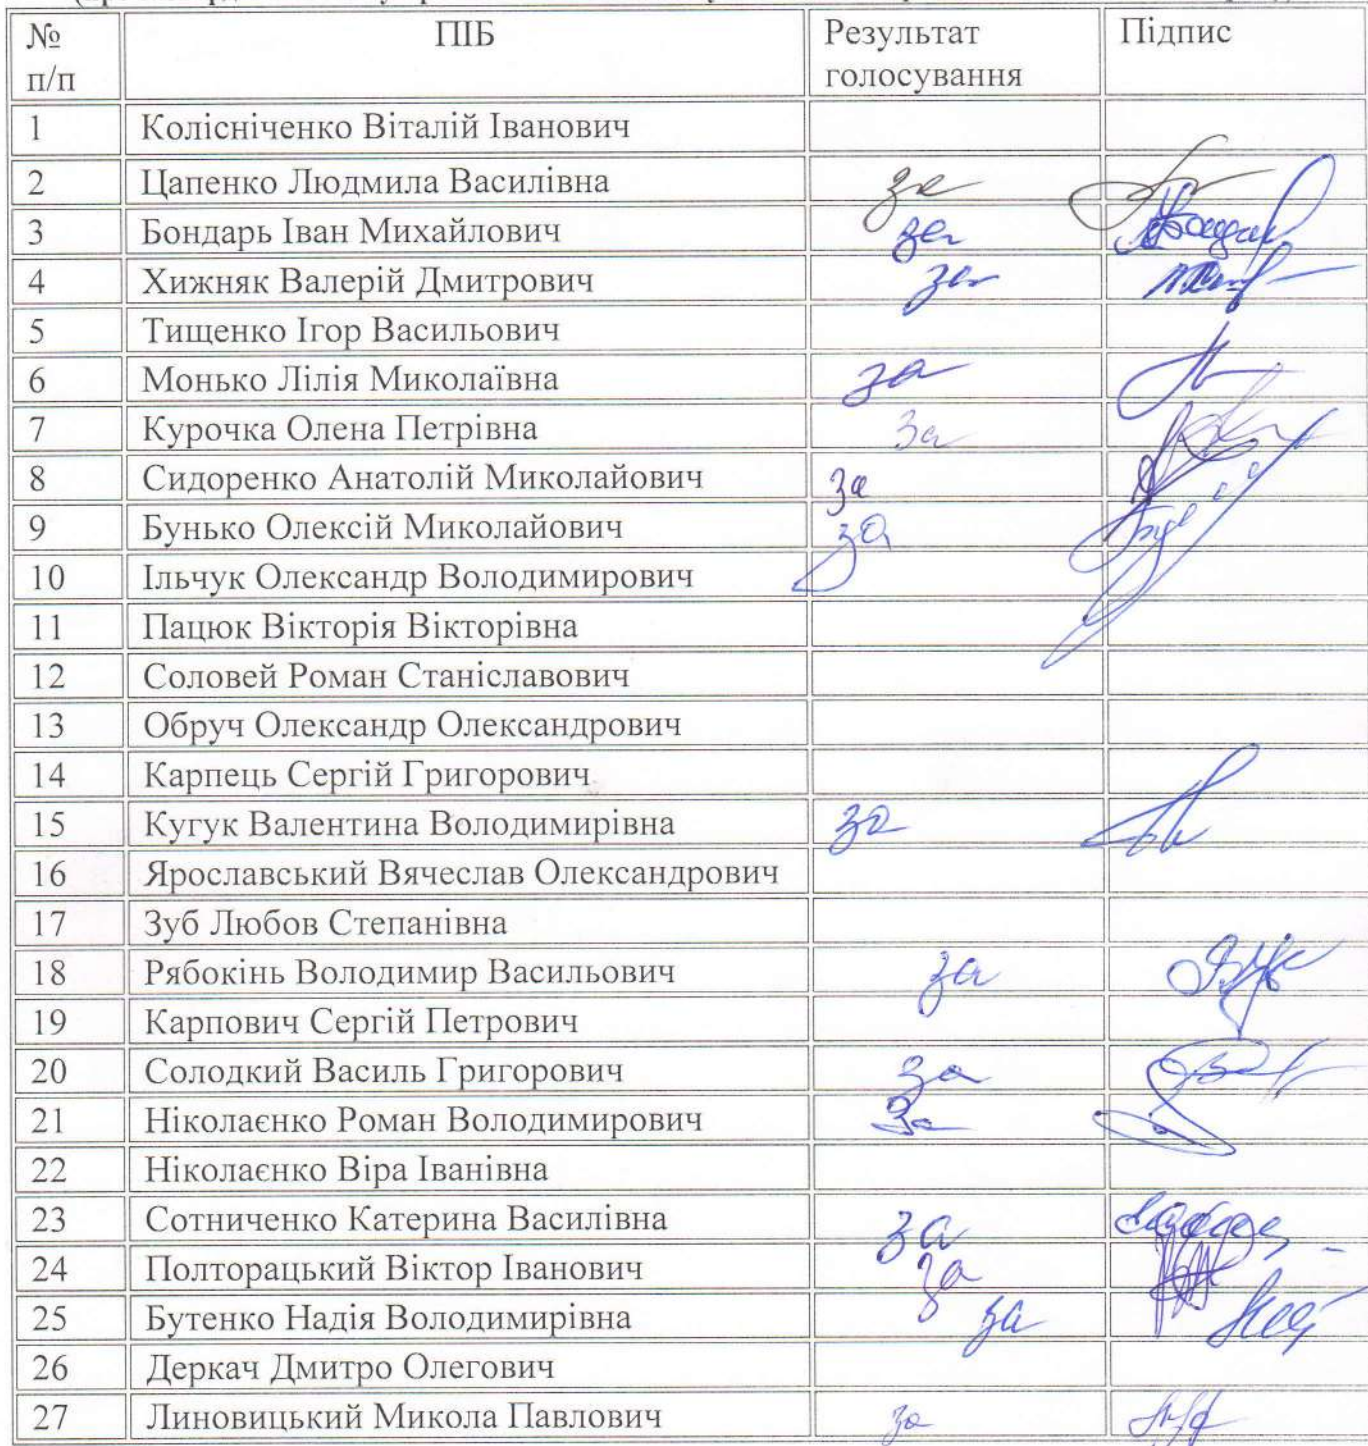 № п/п ПІБ Результат голосування Підпис
1 Колісніченко Віталій Іванович
2 Цапенко Людмила Василівна за
3 Бондарь Іван Михайлович за
4 Хижняк Валерій Дмитрович за
5 Тищенко Ігор Васильович
6 Монько Лілія Миколаївна за
7 Курочка Олена Петрівна За
8 Сидоренко Анатолій Миколайович за
9 Бунько Олексій Миколайович за
10 Ільчук Олександр Володимирович
11 Пацюк Вікторія Вікторівна
12 Соловей Роман Станіславович
13 Обруч Олександр Олександрович
14 Карпець Сергій Григорович
15 Кугук Валентина Володимирівна за
16 Ярославський Вячеслав Олександрович
17 Зуб Любов Степанівна
18 Рябокінь Володимир Васильович за
19 Карпович Сергій Петрович
20 Солодкий Василь Григорович за
21 Ніколаєнко Роман Володимирович За
22 Ніколаєнко Віра Іванівна
23 Сотниченко Катерина Василівна за
24 Полторацький Віктор Іванович за
25 Бутенко Надія Володимирівна за
26 Деркач Дмитро Олегович
27 Линовицький Микола Павлович за